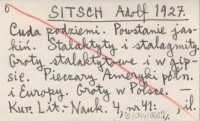 6
SITSCH Adolf 1927.
Cuda podziemi. Powstanie jas-
kiń. Stalaktyty i stalagmity.
Groty stalaktytowe i w gip-
sie. Pieczary Ameryki półn.
i Europy. Groty w Polsce. —
Kur. Lit.-Nauk. 4, nr 41: — il.